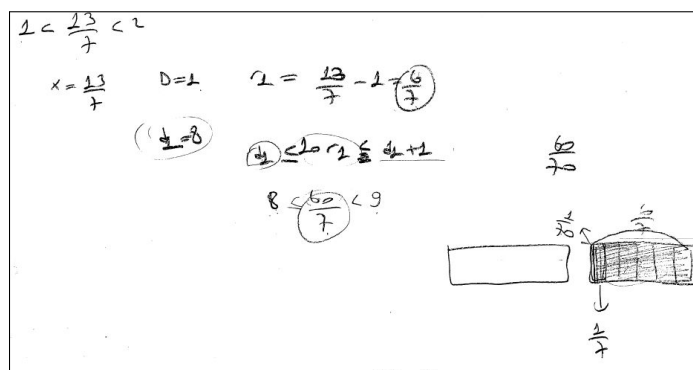 1 < 13/7 < 2
x = 13/7 D=1 r1 = 13/7 - 1 = 6/7
d1=8
d1 ≤ 10 r1 ≤ d1+1
60/70
8 ≤ 60/7 < 9
1/70 6/7
1/7